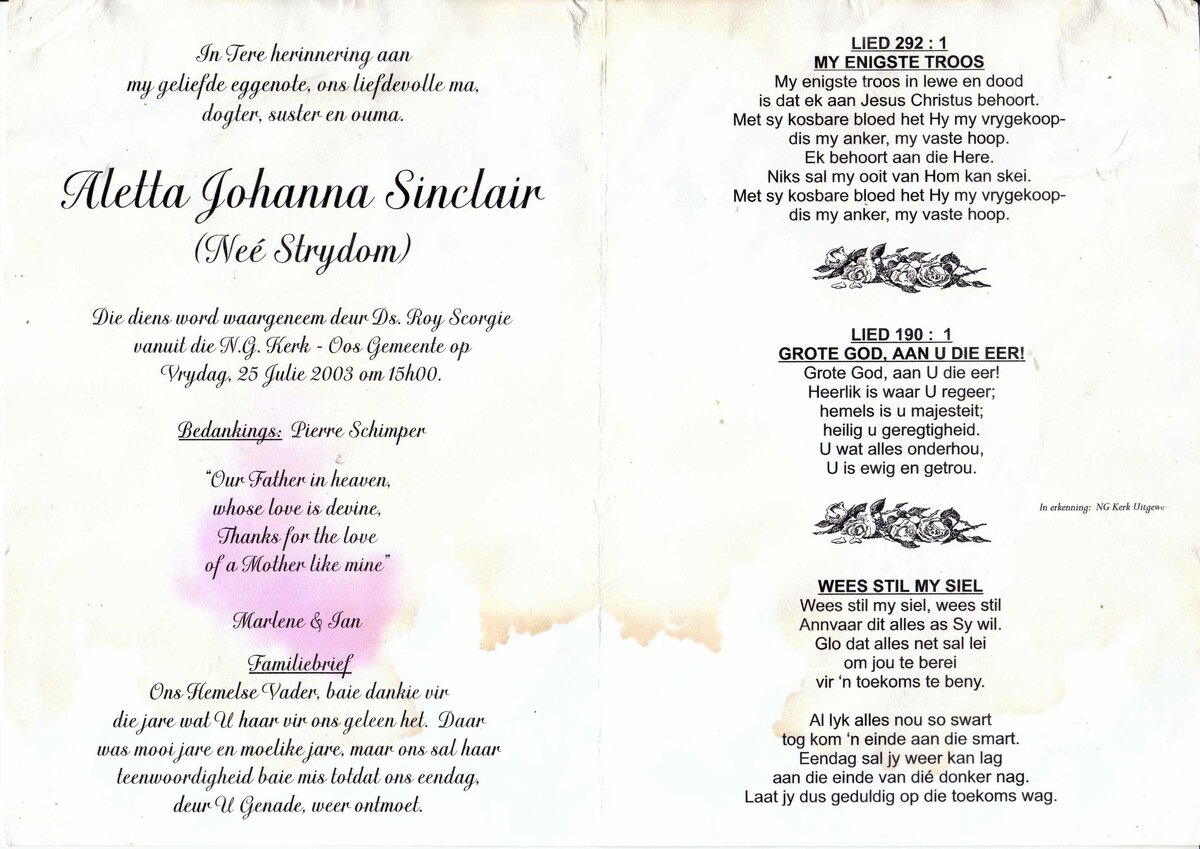 In Tere herinnering aan
my geliefde eggenote, ons liefdevolle ma,
dogter, suster en ouma.
Aletta Johanna Sinclair
(Neé Strydom)
Die diens word waargeneem deur Ds. Roy Scorgie
vanuit die N.G. Kerk - Oos Gemeente op
Vrydag, 25 Julie 2003 om 15h00.
Bedankings: Pierre Schimper
“Our Father in heaven,
whose love is devine,
Thanks for the love
of a Mother like mine”
Marlene & Ian
Familiebrief
Ons Hemelse Vader, baie dankie vir
die jare wat U haar vir ons geleen het. Daar
was mooi jare en moelike jare, maar ons sal haar
teenwoordigheid baie mis totdat ons eendag,
deur U Genade, weer ontmoet.
LIED 292 : 1
MY ENIGSTE TROOS
My enigste troos in lewe en dood
is dat ek aan Jesus Christus behoort.
Met sy kosbare bloed het Hy my vrygekoop-
dis my anker, my vaste hoop.
Ek behoort aan die Here.
Niks sal my ooit van Hom kan skei.
Met sy kosbare bloed het Hy my vrygekoop-
dis my anker, my vaste hoop.
LIED 190 : 1
GROTE GOD, AAN U DIE EER!
Grote God, aan U die eer!
Heerlik is waar U regeer;
hemels is u majesteit;
heilig u geregtigheid.
U wat alles onderhou,
U is ewig en getrou.
In erkenning: NG Kerk Uitgewe
WEES STIL MY SIEL
Wees stil my siel, wees stil
Annvaar dit alles as Sy wil.
Glo dat alles net sal lei
om jou te berei
vir ‘n toekoms te beny.
Al lyk alles nou so swart
tog kom ‘n einde aan die smart.
Eendag sal jy weer kan lag
aan die einde van dié donker nag.
Laat jy dus geduldig op die toekoms wag.